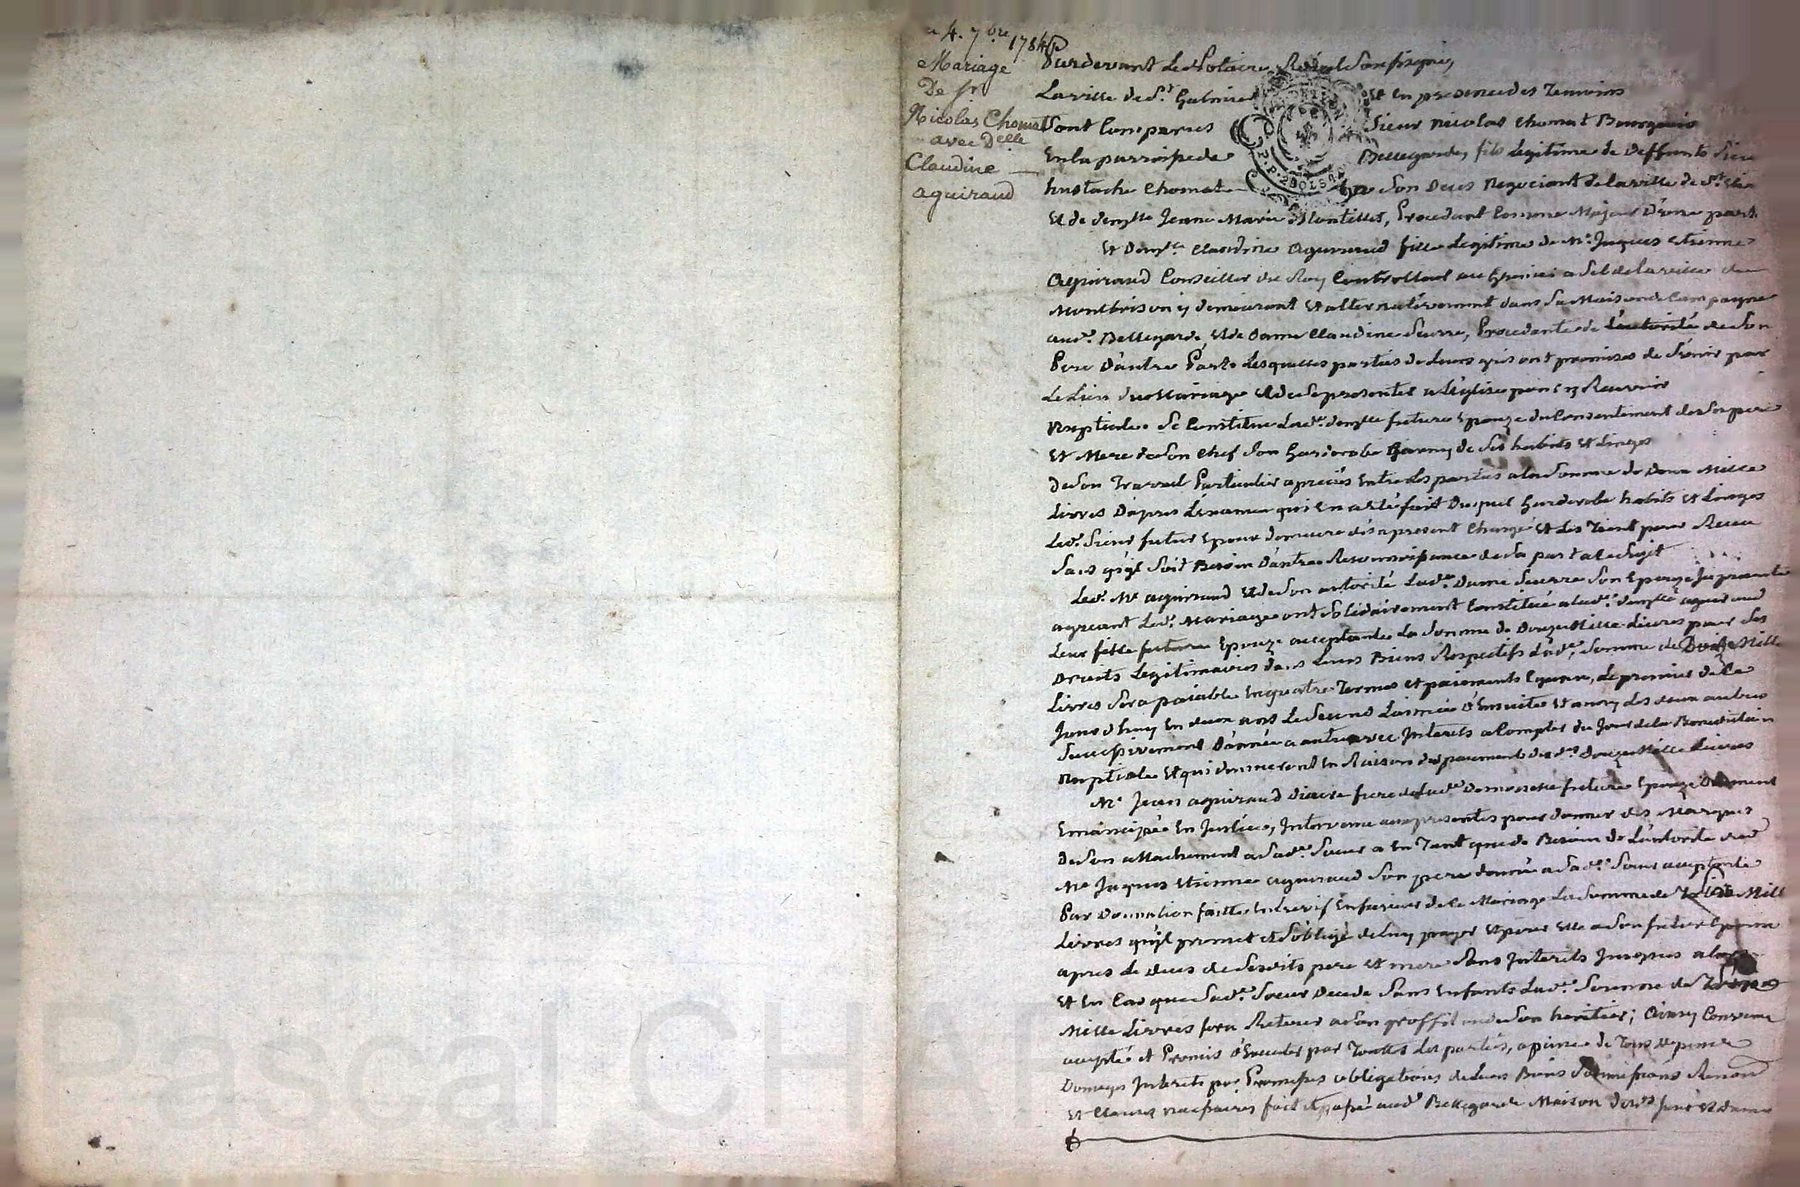 4. 7bre 1784
Mariage
De Sr
Nicolas Chomat
avec Delle
Claudine
aguiraud
Pardevant Le Notaire Royal Soussigné
La ville de St Galmier Et En presence des Temoins
Sont Comparus Sieur Nicolas Chomat Bourgeois
En la parroisse de Bellegarde, fils Legitime de Deffunts Sieur
hustache Chomat Son Deces Negociant de la ville de St
Et de demlle Jeanne Marie Montillet, Procedant Comme Majeur D'une part
Et Demlle Claudine aguiraud fille Legitime de Mr Jaques Etienne
aguiraud Conseiller du Roy Controlleur au Grenier a Sel de la ville de
Montbrison y demeurant Et alternativement dans Sa Maison de Campagne
aud. Bellegarde, Et de Dame Claudine Seurre, Procedante de L'autorité de Son
Pere D'autre Part, Lesquelles parties de Leurs gré ont promises de S'unir par
Le Lien du Mariage Et de Se presenter a L'église pour y Recevoir
Nuptiale. Se Constitue Lade demlle future Epouze du Consentement de Son pere
Et Mere de Son Chef Son Garderobe Garny de Ses habits Et Linges
De Son Travail Particulier apreciés Entre Les parties a la Somme de Deux Mille
Livres D'apres L'examen qui En a été fait Duquel Garderobe habits Et Linges
Led. Sieur futur Epoux demeure des apresent Chargé Et Les Tient pour Receu
Sans qu'il Soit Besoin D'autre Reconnoissance de Sa part a Ce Sujet
Led. Mr aguiraud Et de Son autorité Lade Dame Seurre Son Epouze Icy presente
agreant Led. Mariage ont Solidairement Constitué a lade demlle aguiraud
Leur fille future Epouze acceptante La Somme de Douze Mille Livres pour Ses
Droits Legitimaires dans Leurs Biens Respectifs Lade Somme de Douze Mille
Livres Sera païable En quatre Termes et païements Egaux, Le premier de Ce
Jourd'huy En deux ans Le Second L'année d'Ensuite Et ainsy Les deux autres
Successivement D'année a autre avec Interets a Compter du Jour de la Benediction
Nuptiale Et qui diminueront En Raison des païements desdes Douze Mille Livres
Mr Jean aguiraud Diacre frere de Lade Demoiselle future Epouze Duement
Emancipée En Justice, Intervenu aux presentes pour donner des Marques
De Son attachement a Sade Soeur a En Tant que de Besoin de L'autorité dud
Mr Jaques Etienne aguiraud Son pere donné a Sade Soeur acceptante
Par Donnation faitte Entrevif En faveur de Ce Mariage La Somme de Mille
Livres qu'il promet Et S'oblige de Luy payer Et pour Elle a Son futur Epoux
apres Le deces de Sesdits pere Et mere Sans Interets Jusques alors
Et En Cas que Sade Soeur Decede Sans Enfants Lade Somme de
Mille Livres fera Retour a Son proffit ou de Son heritier; Ainsy Convenu
accepté et Promis d'Executer par Touttes Les parties, a peine de Tous depens
Domages Interets par Promesses obligations de Leurs Biens Soumissions Renon
Et Clauses necessaires fait Et passé aud. Bellegarde Maison desds Sieur Et dame